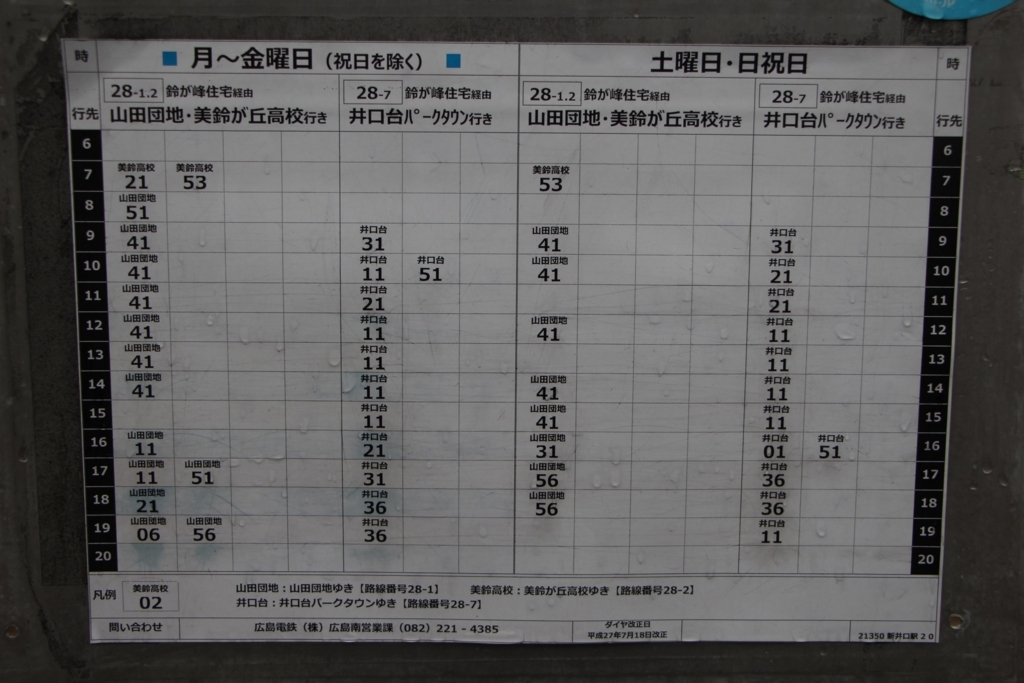 時 ■ 月～金曜日（祝日を除く） ■ 土曜日・日祝日 時
28-1.2 鈴が峰住宅経由 28-7 鈴が峰住宅経由 28-1.2 鈴が峰住宅経由 28-7 鈴が峰住宅経由
行先 山田団地・美鈴が丘高校行き 井口台パークタウン行き 山田団地・美鈴が丘高校行き 井口台パークタウン行き 行先
6 6
美鈴高校 美鈴高校 美鈴高校
7 21 53 53 7
山田団地
8 51 8
山田団地 井口台 山田団地 井口台
9 41 31 41 31 9
山田団地 井口台 井口台 山田団地 井口台
10 41 11 51 41 21 10
山田団地 井口台 井口台
11 41 21 21 11
山田団地 井口台 山田団地 井口台
12 41 11 41 11 12
山田団地 井口台 井口台
13 41 11 11 13
山田団地 井口台 山田団地 井口台
14 41 11 41 11 14
井口台 山田団地 井口台
15 11 41 11 15
山田団地 井口台 山田団地 井口台 井口台
16 11 21 31 01 51 16
山田団地 山田団地 井口台 山田団地 井口台
17 11 51 31 56 36 17
山田団地 井口台 山田団地 井口台
18 21 36 56 36 18
山田団地 山田団地 井口台 井口台
19 06 56 36 11 19
20 20
凡例 美鈴高校 02
山田団地：山田団地ゆき【路線番号28-1】 美鈴高校：美鈴が丘高校ゆき【路線番号28-2】
井口台：井口台パークタウンゆき【路線番号28-7】
問い合わせ 広島電鉄（株）広島南営業課（082）221 - 4385 ダイヤ改正日
平成27年7月18日改正 21350 新井口駅 2 0